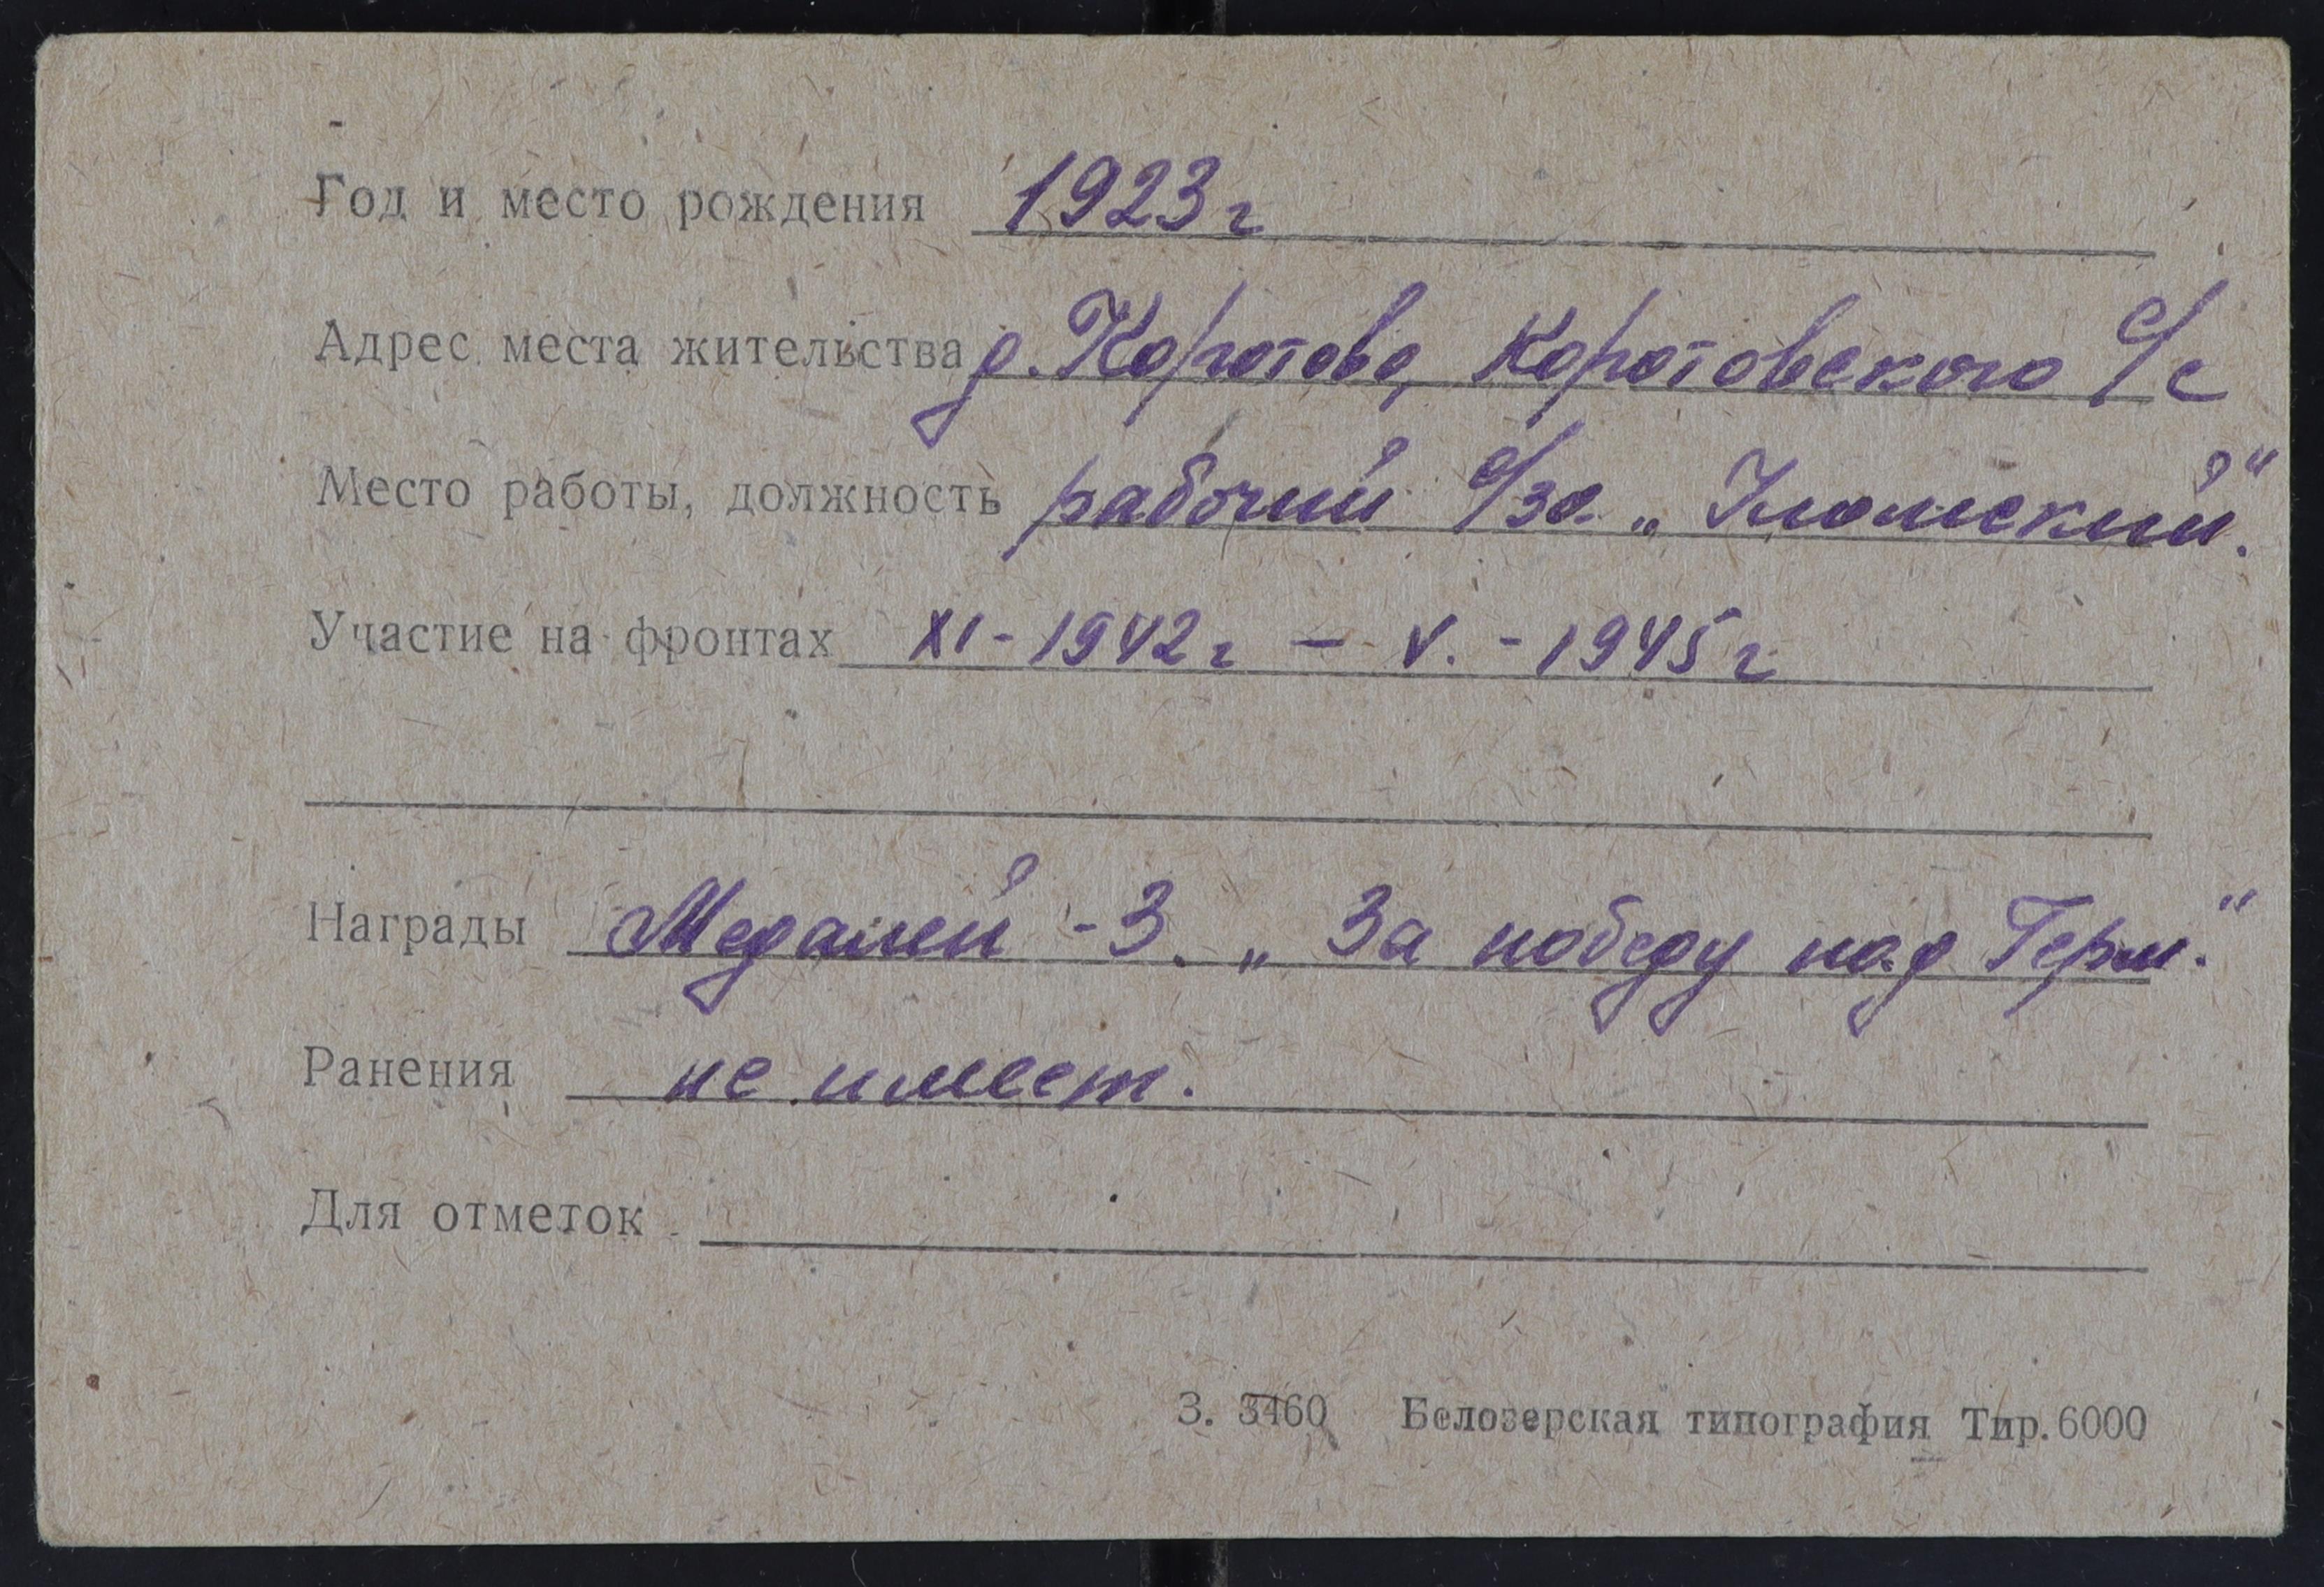 Год и место рождения 1923 г
Адрес места жительства д. Коротово, Коротовского с/с
Место работы, должность рабочий с/за „Уломский".
Участие на фронтах XI - 1942 г — V. - 1945 г
Награды Медалей - 3. „За победу над Герм."
Ранения не имеет.
Для отметок
З. 3460 Белозерская типография Тир. 6000